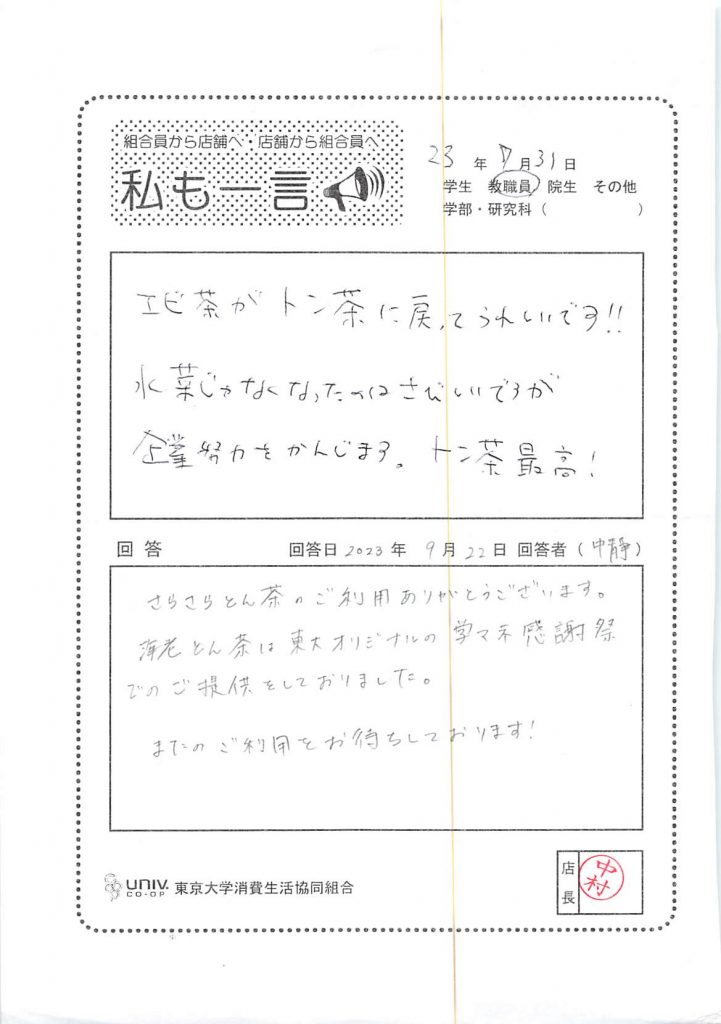 組合員から店舗へ・店舗から組合員へ
私も一言
23 年 7 月 31 日
学生 教職員 院生 その他
学部・研究科 ( )
エビ茶がトン茶に戻ってうれしいです!!
水菜じゃなくなったのはさびしいですが
企業努力をかんじます。トン茶最高!
回答 回答日 2023 年 9 月 22 日 回答者 (中静)
さらさらとん茶のご利用ありがとうございます。
海老とん茶は東大オリジナルの学マネ感謝祭
でのご提供をしておりました。
またのご利用をお待ちしております!
UNIV. CO-OP 東京大学消費生活協同組合
店長 中村